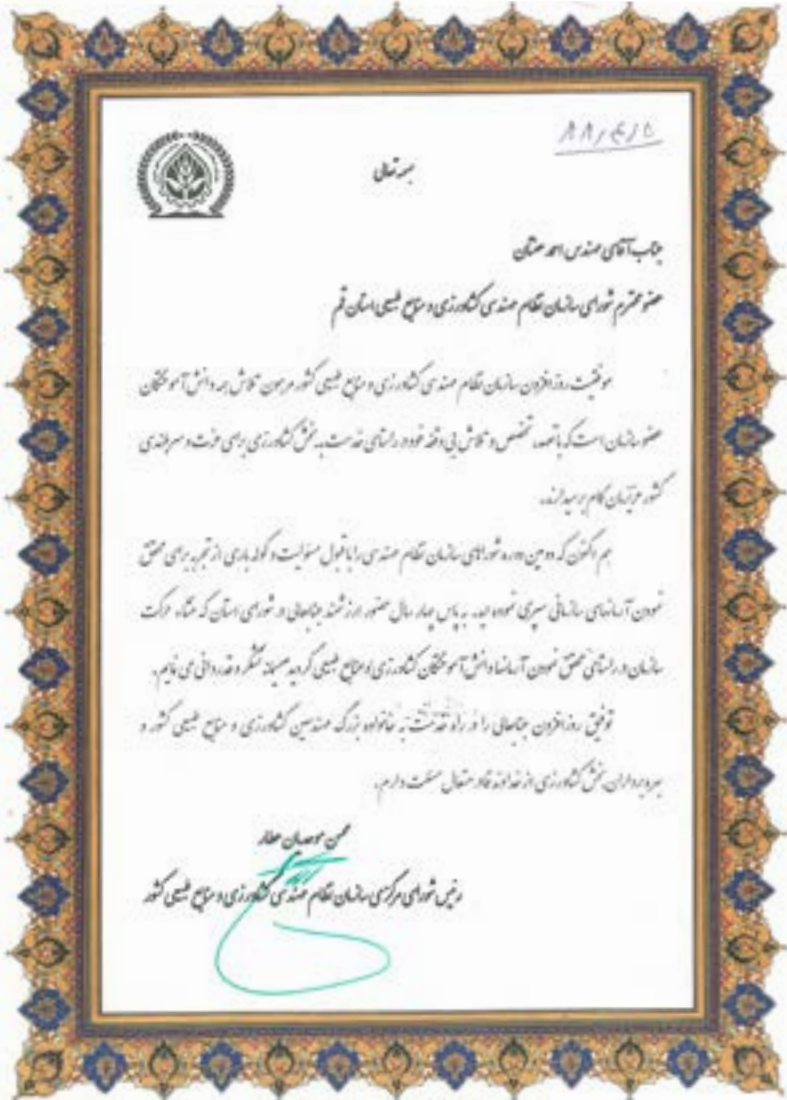 ۸۸/۴/۵
بسمه تعالی
جناب آقای مهندس احمد
عضو محترم شورای سازمان نظام مهندسی کشاورزی و منابع طبیعی استان قم
موفقیت روزافزون سازمان نظام مهندسی کشاورزی و منابع طبیعی کشور مرهون تلاش همه دانش آموختگان
عضو سازمان است که با تعهد، تخصص و تلاش بی وقفه خود در راستای خدمت به بخش کشاورزی برای عزت و سربلندی
کشور عزیزمان گام برمیدارند.
هم اکنون که دومین دوره شوراهای سازمان نظام مهندسی را با قبول مسئولیت و کوله باری از تجربه برای محقق
نمودن آرمانهای سازمانی سپری نموده اید، به پاس چهار سال حضور ارزشمند جنابعالی در شورای استان که منشاء حرکت
سازمان در راستای محقق نمودن آرمانها دانش آموختگان کشاورزی و منابع طبیعی گردید صمیمانه تشکر و قدردانی می نمایم.
توفیق روزافزون جنابعالی را در راه خدمت به خانواده بزرگ مهندسین کشاورزی و منابع طبیعی کشور و
بهره برداران بخش کشاورزی از خداوند قادر متعال مسئلت دارم.
محسن موحدیان عطار
رئیس شورای مرکزی سازمان نظام مهندسی کشاورزی و منابع طبیعی کشور